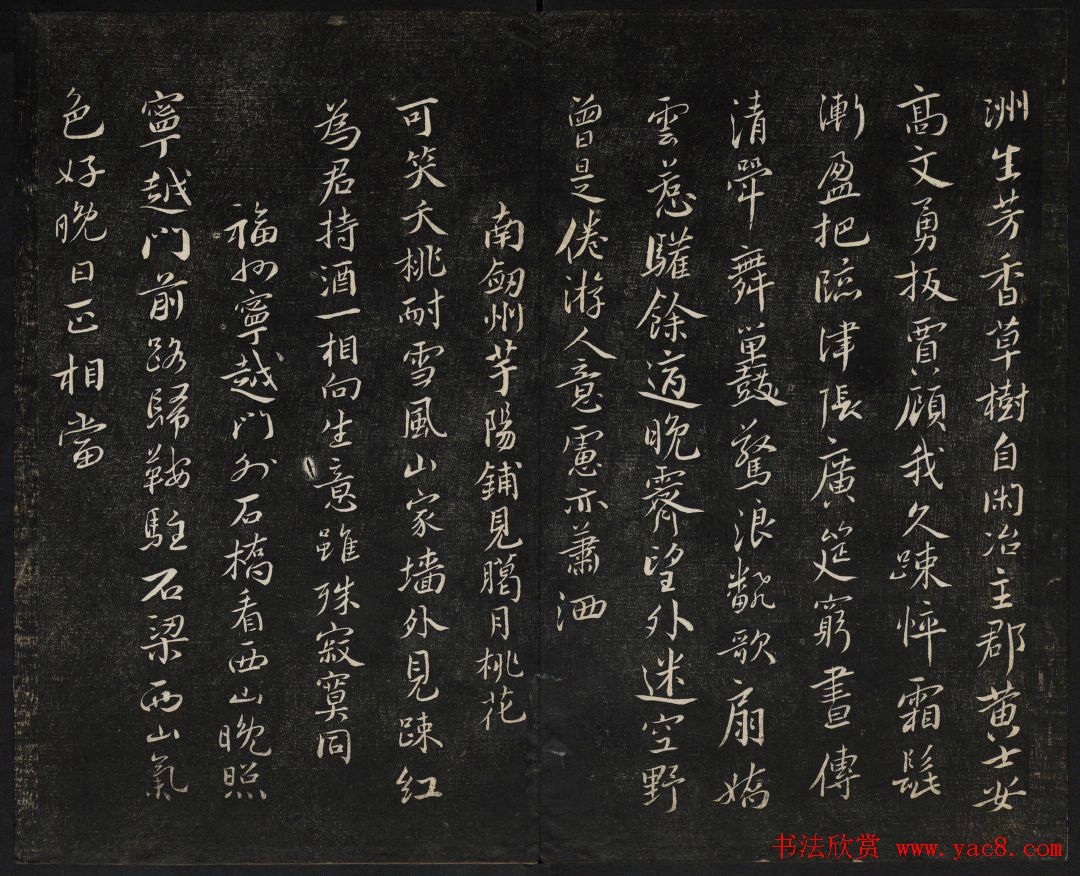 洲生芳香草樹自閑冶主郡黄士安
高文勇扳賈顧我久踈悴霜髭
漸盈把臨津張廣筵窮晝傳
清斝舞鞷鼓驚浪翻歌扇嬌
雲惹驩餘適晚霽望外迷空野
曾是倦游人意慮亦蕭洒
南劒州芋陽鋪見臈月桃花
可笑夭桃耐雪風山家墻外見踈紅
為君持酒一相向生意雖殊寂寞同
福州寧越門外石橋看西山晚照
寧越門前路歸鞍駐石梁西山氣
色好晚日正相當
书法欣赏 www.yac8.com